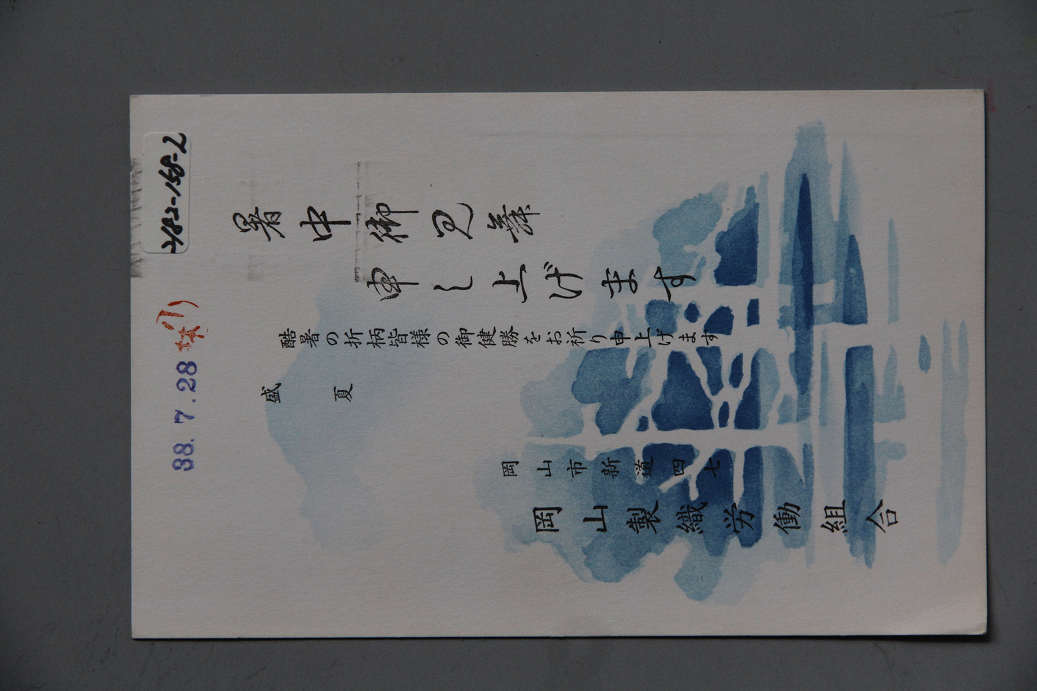 482-158-2
38.7.28
暑中御見舞
申し上げます
酷暑の折柄皆様の御健勝をお祈り申上げます
盛夏
岡山市新道四七
岡山製織労働組合